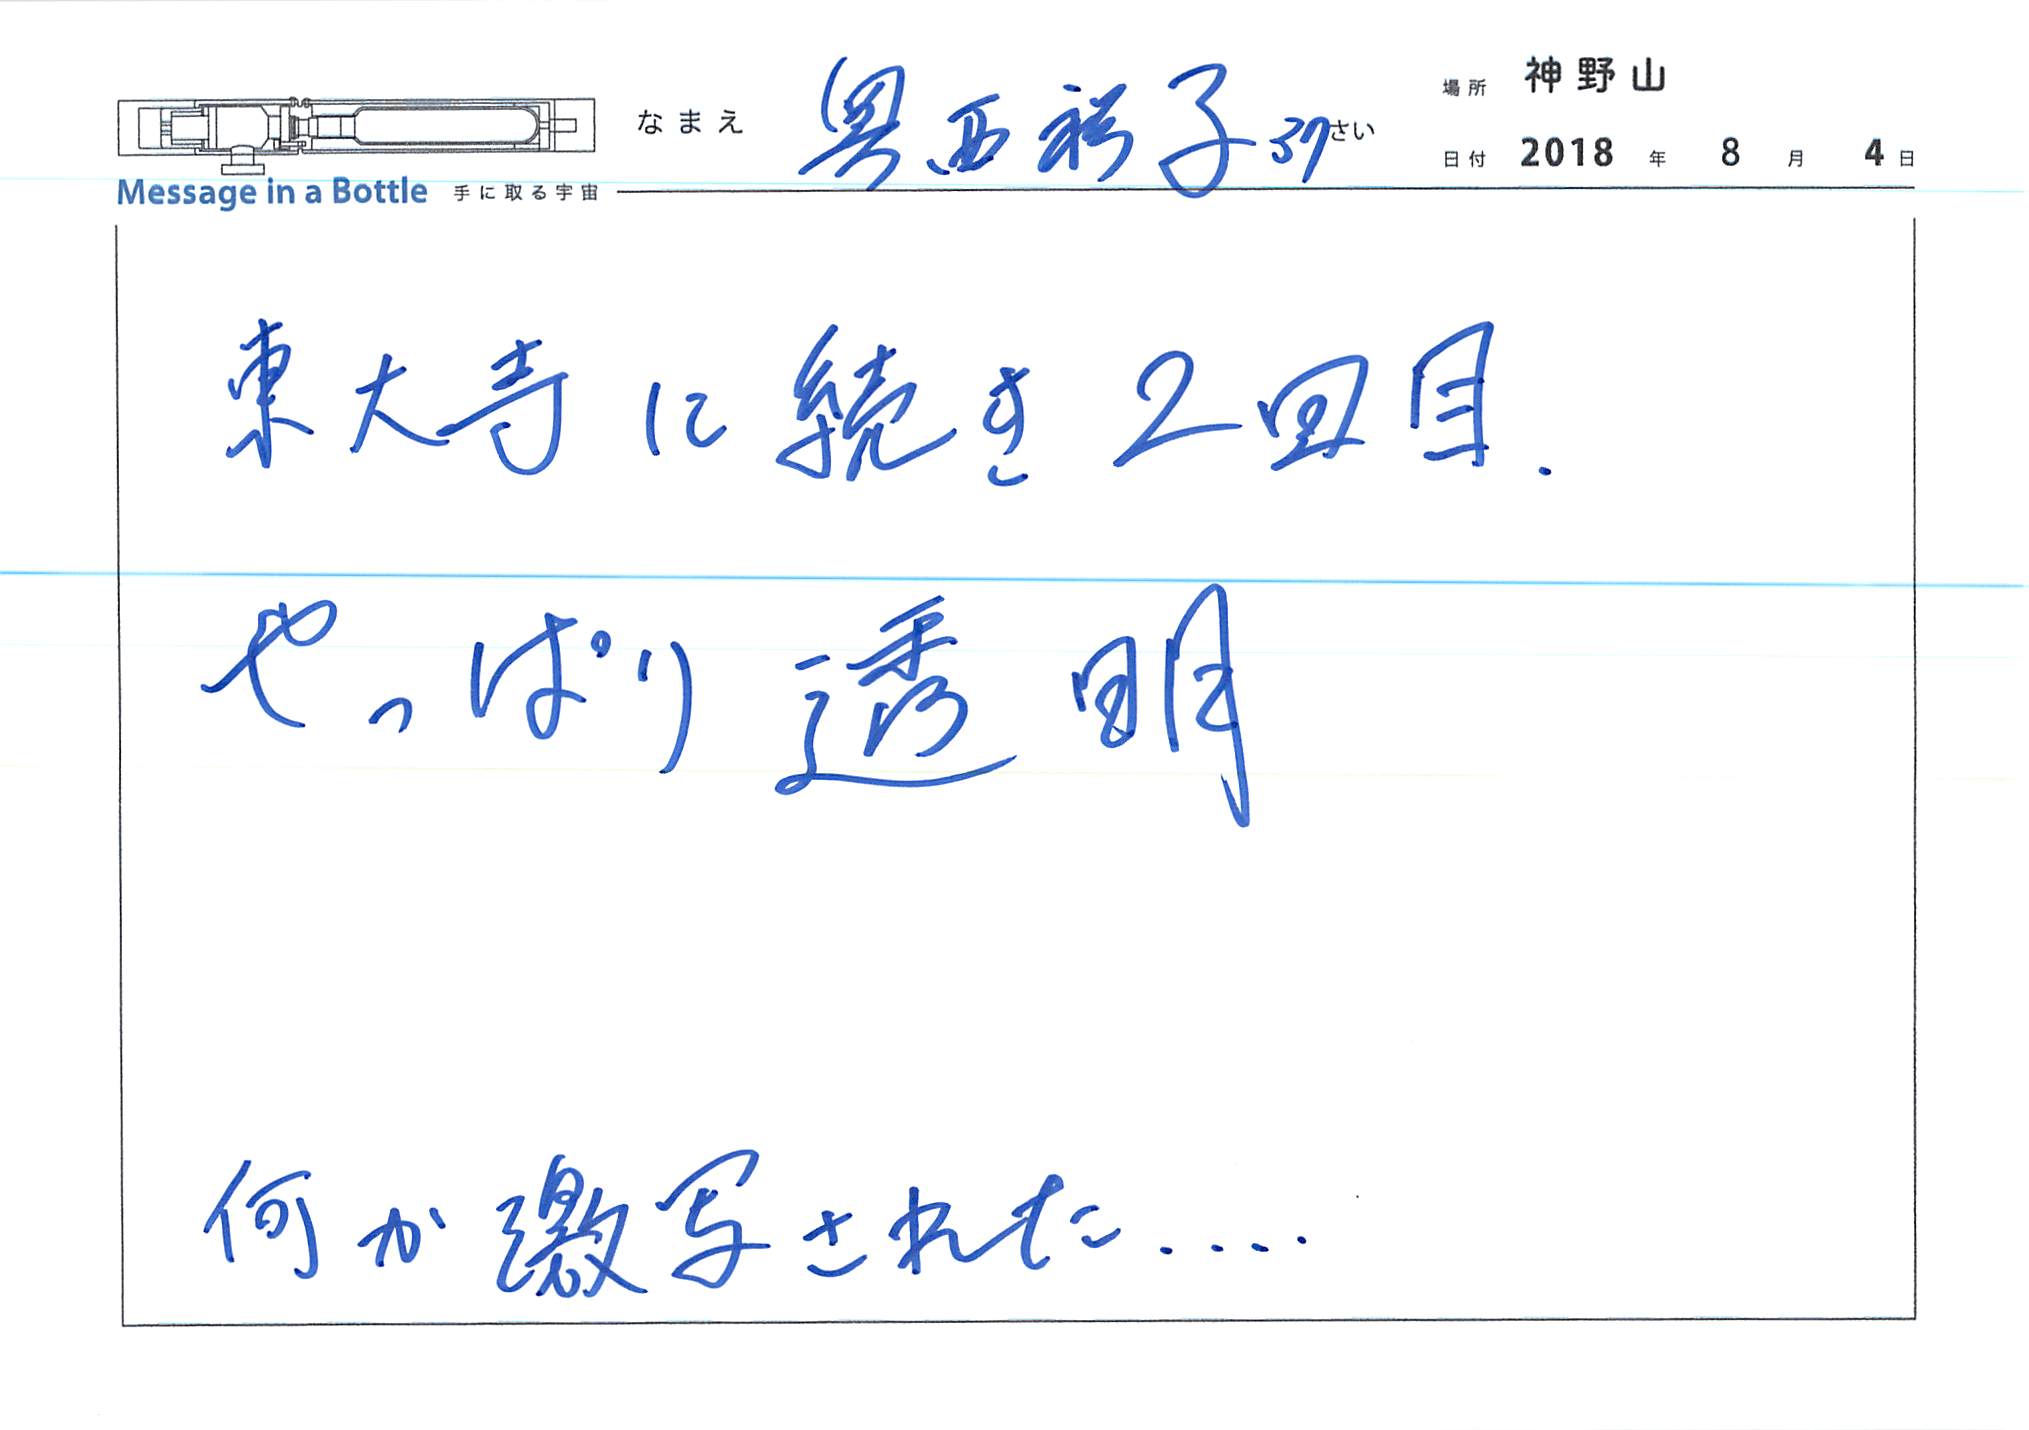 なまえ 奥西祥子 37さい
場所 神野山
日付 2018年 8月 4日
Message in a Bottle 手に取る宇宙
東大寺に続き2回目.
やっぱり透明
何か激写された.....